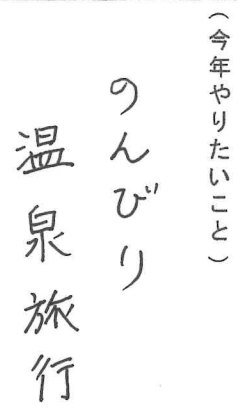 （今年やりたいこと）
のんびり
温泉旅行